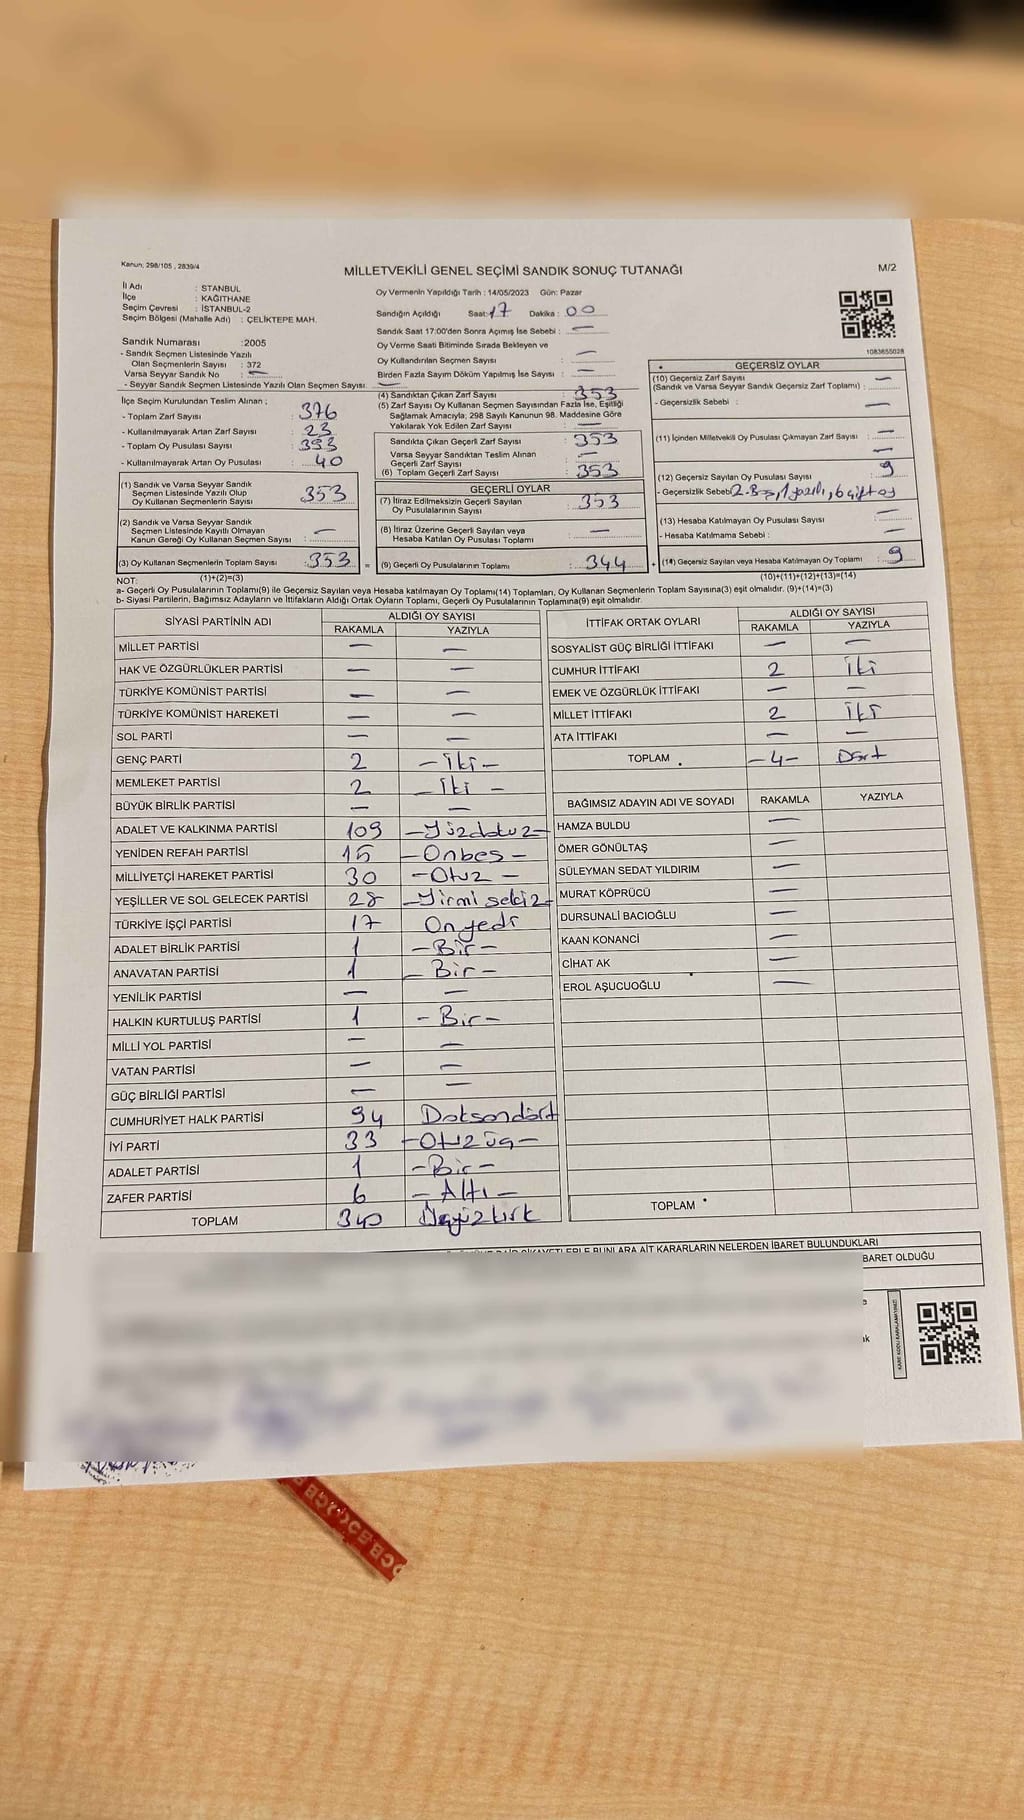 Kanun: 298/105 , 2839/4
MİLLETVEKİLİ GENEL SEÇİMİ SANDIK SONUÇ TUTANAĞI
M/2
İl Adı : STANBUL
İlçe : KAĞITHANE
Seçim Çevresi : İSTANBUL-2
Seçim Bölgesi (Mahalle Adı) : ÇELİKTEPE MAH.
Oy Vermenin Yapıldığı Tarih : 14/05/2023 Gün: Pazar
Sandığın Açıldığı Saat: 17 Dakika : 00
Sandık Saat 17:00'den Sonra Açımış İse Sebebi : —
Oy Verme Saati Bitiminde Sırada Bekleyen ve
Oy Kullandırılan Seçmen Sayısı : —
Birden Fazla Sayım Döküm Yapılmış İse Sayısı : —
Sandık Numarası :2005
- Sandık Seçmen Listesinde Yazılı
Olan Seçmenlerin Sayısı : 372
Varsa Seyyar Sandık No : —
- Seyyar Sandık Seçmen Listesinde Yazılı Olan Seçmen Sayısı: —
İlçe Seçim Kurulundan Teslim Alınan ;
- Toplam Zarf Sayısı : 376
- Kullanılmayarak Artan Zarf Sayısı : 23
- Toplam Oy Pusulası Sayısı : 393
- Kullanılmayarak Artan Oy Pusulası : 40
(1) Sandık ve Varsa Seyyar Sandık
Seçmen Listesinde Yazılı Olup
Oy Kullanan Seçmenlerin Sayısı : 353
(2) Sandık ve Varsa Seyyar Sandık
Seçmen Listesinde Kayıtlı Olmayan
Kanun Gereği Oy Kullanan Seçmen Sayısı : —
(3) Oy Kullanan Seçmenlerin Toplam Sayısı : 353 =
(4) Sandıktan Çıkan Zarf Sayısı : 353
(5) Zarf Sayısı Oy Kullanan Seçmen Sayısından Fazla İse, Eşitliği
Sağlamak Amacıyla; 298 Sayılı Kanunun 98. Maddesine Göre
Yakılarak Yok Edilen Zarf Sayısı : —
Sandıkta Çıkan Geçerli Zarf Sayısı : 353
Varsa Seyyar Sandıktan Teslim Alınan
Geçerli Zarf Sayısı : —
(6) Toplam Geçerli Zarf Sayısı : 353
GEÇERLİ OYLAR
(7) İtiraz Edilmeksizin Geçerli Sayılan
Oy Pusulalarının Sayısı : 353
(8) İtiraz Üzerine Geçerli Sayılan veya
Hesaba Katılan Oy Pusulası Toplamı : —
(9) Geçerli Oy Pusulalarının Toplamı : 344 +
1083655028
GEÇERSİZ OYLAR
(10) Geçersiz Zarf Sayısı
(Sandık ve Varsa Seyyar Sandık Geçersiz Zarf Toplamı) : —
- Geçersizlik Sebebi : —
(11) İçinden Milletvekili Oy Pusulası Çıkmayan Zarf Sayısı : —
—
(12) Geçersiz Sayılan Oy Pusulası Sayısı : 9
- Geçersizlik Sebebi
(13) Hesaba Katılmayan Oy Pusulası Sayısı : —
- Hesaba Katılmama Sebebi : —
(14) Geçersiz Sayılan veya Hesaba Katılmayan Oy Toplamı : 9
NOT: (1)+(2)=(3) (10)+(11)+(12)+(13)=(14)
a- Geçerli Oy Pusulalarının Toplamı(9) ile Geçersiz Sayılan veya Hesaba katılmayan Oy Toplamı(14) Toplamları, Oy Kullanan Seçmenlerin Toplam Sayısına(3) eşit olmalıdır. (9)+(14)=(3)
b- Siyasi Partilerin, Bağımsız Adayların ve İttifakların Aldığı Ortak Oyların Toplamı, Geçerli Oy Pusulalarının Toplamına(9) eşit olmalıdır.
SİYASİ PARTİNİN ADI ALDIĞI OY SAYISI
RAKAMLA YAZIYLA
MİLLET PARTİSİ — —
HAK VE ÖZGÜRLÜKLER PARTİSİ — —
TÜRKİYE KOMÜNİST PARTİSİ — —
TÜRKİYE KOMÜNİST HAREKETİ — —
SOL PARTİ — —
GENÇ PARTİ 2 —İki—
MEMLEKET PARTİSİ 2 —İki —
BÜYÜK BİRLİK PARTİSİ — —
ADALET VE KALKINMA PARTİSİ 109 —Yüzdokuz—
YENİDEN REFAH PARTİSİ 15 —Onbeş—
MİLLİYETÇİ HAREKET PARTİSİ 30 —Otuz—
YEŞİLLER VE SOL GELECEK PARTİSİ 28 —Yirmisekiz—
TÜRKİYE İŞÇİ PARTİSİ 17 Onyedi
ADALET BİRLİK PARTİSİ 1 —Bir—
ANAVATAN PARTİSİ 1 —Bir—
YENİLİK PARTİSİ — —
HALKIN KURTULUŞ PARTİSİ 1 —Bir—
MİLLİ YOL PARTİSİ — —
VATAN PARTİSİ — —
GÜÇ BİRLİĞİ PARTİSİ — —
CUMHURİYET HALK PARTİSİ 94 Doksandört
İYİ PARTİ 33 —Otuzüç—
ADALET PARTİSİ 1 —Bir—
ZAFER PARTİSİ 6 —Altı—
TOPLAM 340 Üçyüzkırk
İTTİFAK ORTAK OYLARI ALDIĞI OY SAYISI
RAKAMLA YAZIYLA
SOSYALİST GÜÇ BİRLİĞİ İTTİFAKI — —
CUMHUR İTTİFAKI 2 İki
EMEK VE ÖZGÜRLÜK İTTİFAKI — —
MİLLET İTTİFAKI 2 İki
ATA İTTİFAKI — —
TOPLAM —4— Dört
BAĞIMSIZ ADAYIN ADI VE SOYADI RAKAMLA YAZIYLA
HAMZA BULDU —
ÖMER GÖNÜLTAŞ —
SÜLEYMAN SEDAT YILDIRIM —
MURAT KÖPRÜCÜ —
DURSUNALİ BACIOĞLU —
KAAN KONANCİ —
CİHAT AK —
EROL AŞUCUOĞLU —
TOPLAM
BUNLARA AİT KARARLARIN NELERDEN İBARET BULUNDUKLARI
BARET OLDUĞU